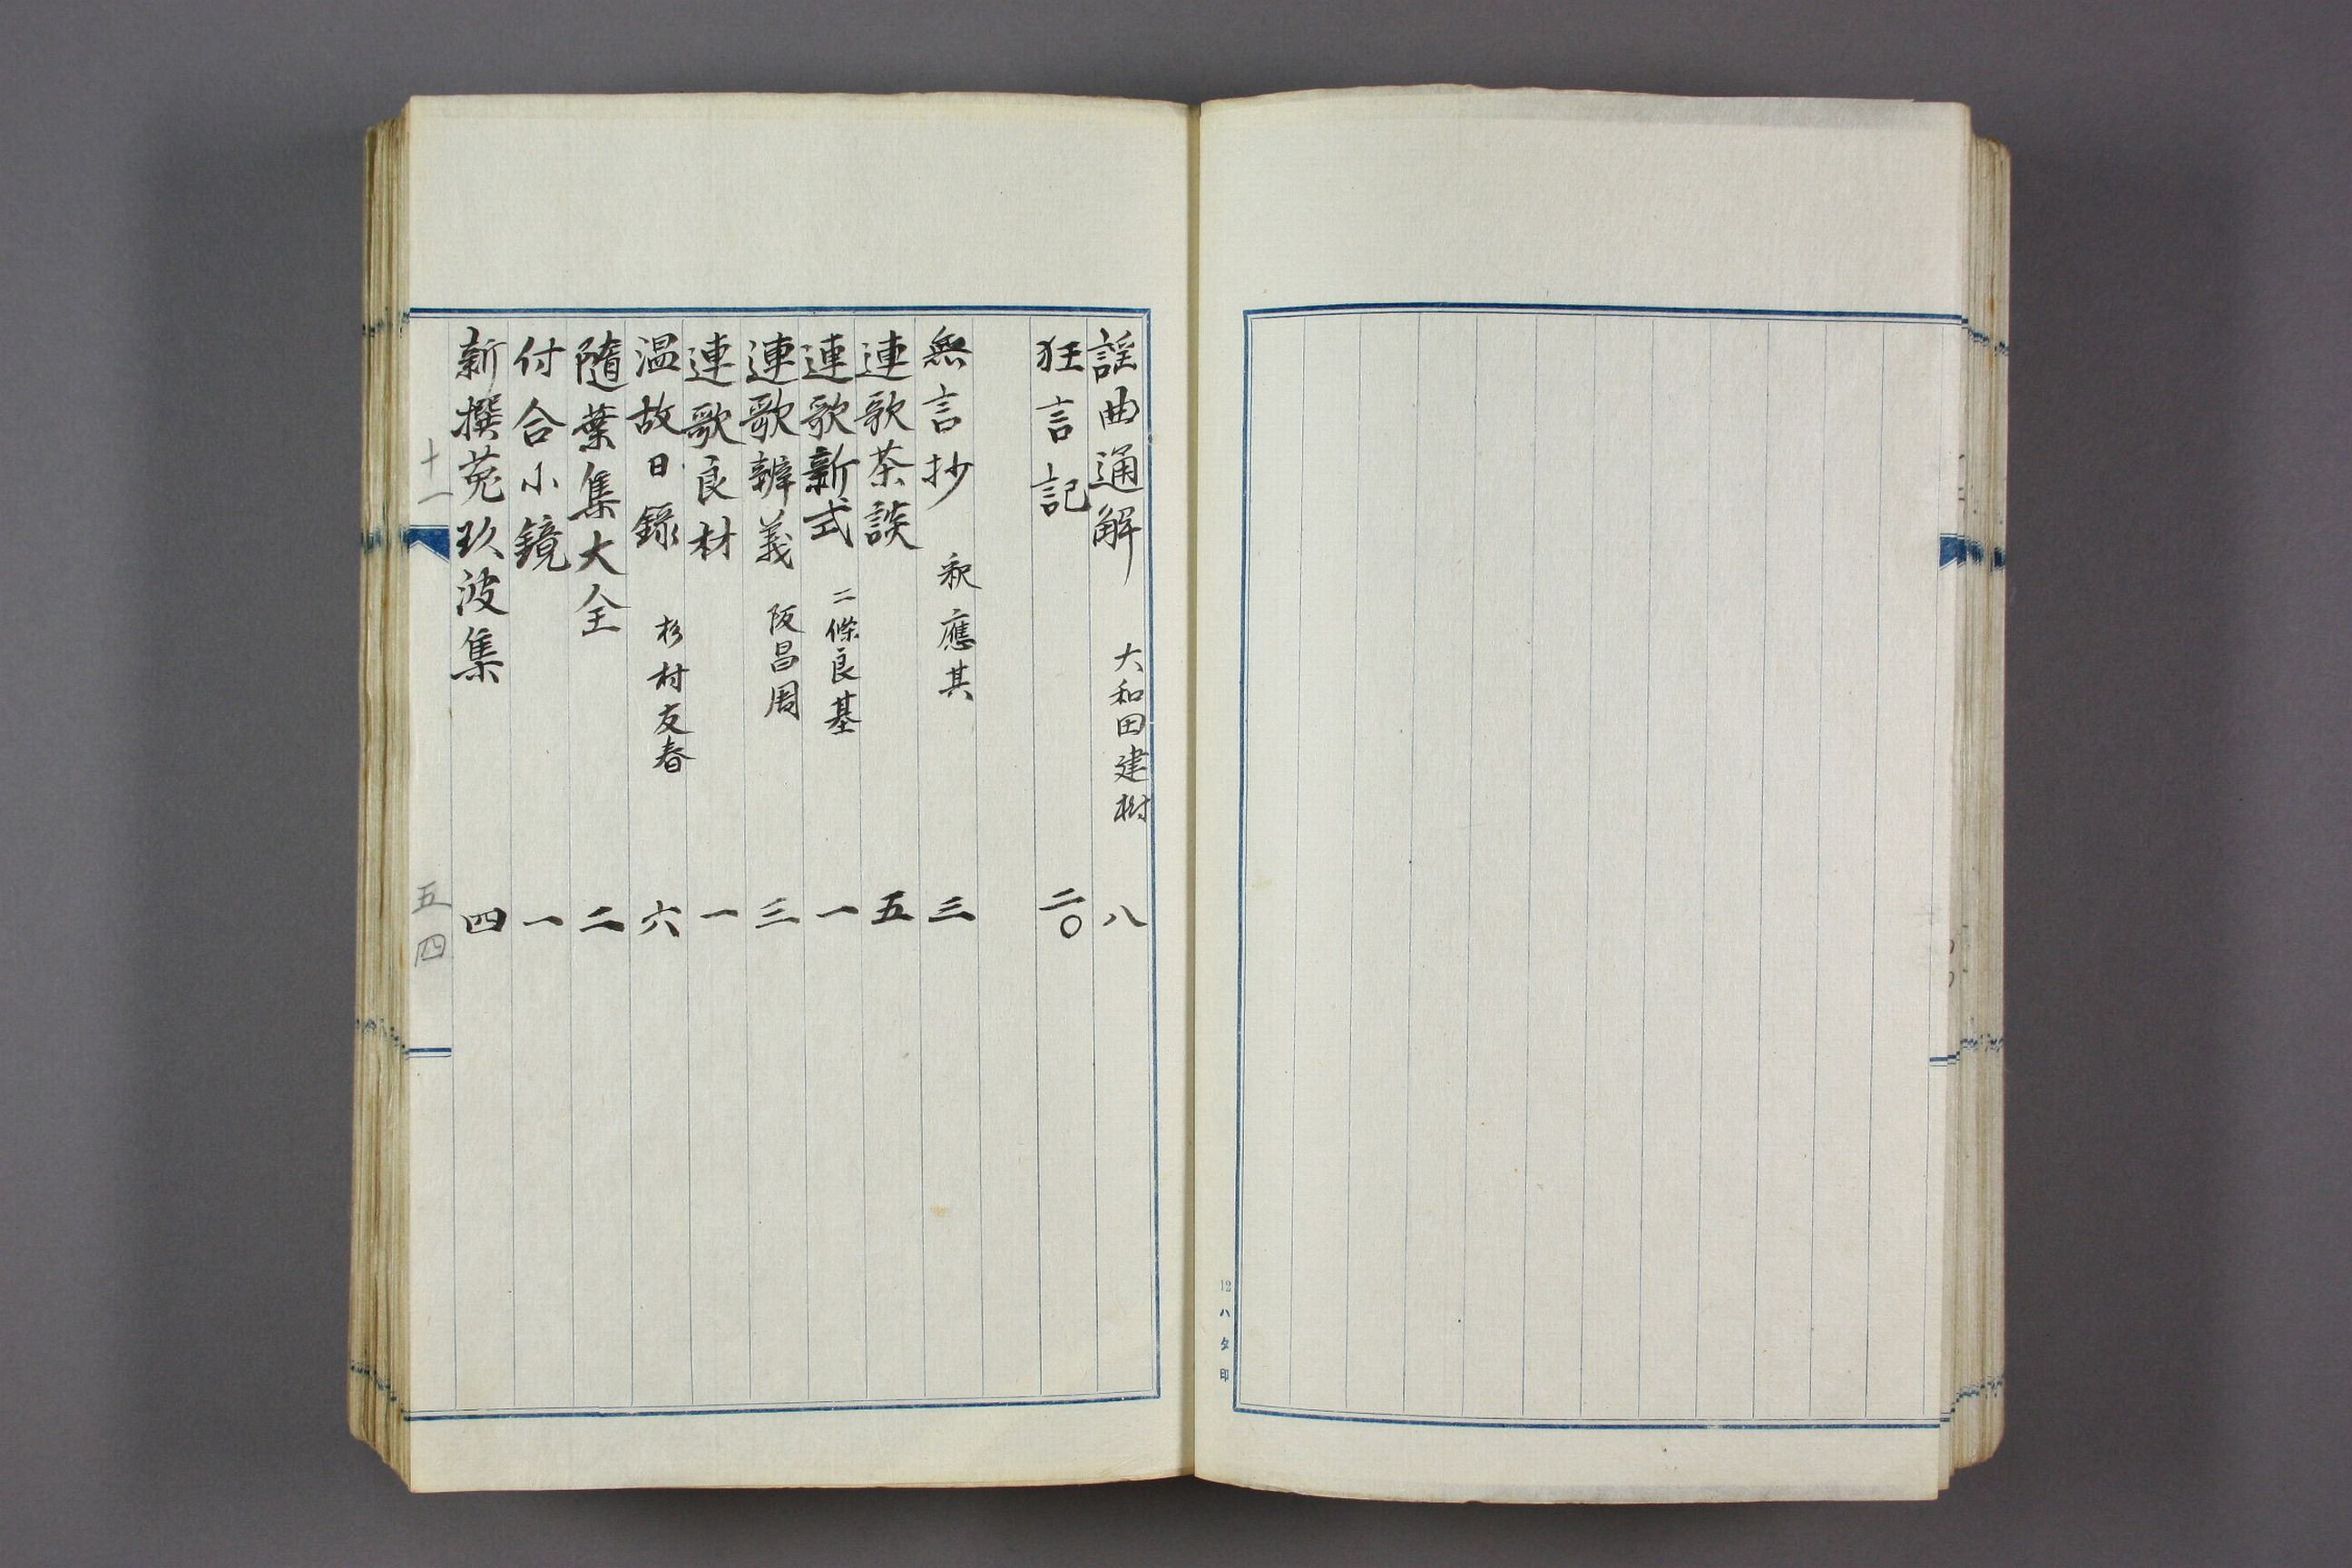 12 ハタ印
謡曲通解 大和田建樹 八
狂言記 二〇
無言抄 釈應其 三
連歌茶談 五
連歌新式 二條良基 一
連歌辨義 阪昌周 三
連歌良材 一
温故日録 杉村友春 六
隨葉集大全 二
付合小鏡 一
新撰菟玖波集 四
十一 五四